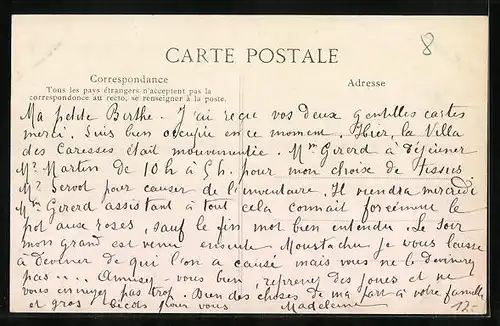 8
CARTE POSTALE
Correspondance
Tous les pays étrangers n'acceptent pas la
correspondance au recto, se renseigner à la poste.
Adresse
Ma petite Berthe. J'ai reçue vos deux gentilles cartes
merci. Suis bien occupée en ce moment. Hier, la Villa
des Caresses était mouvementée. Mme Gerord à Déjeuner
Mr Martin de 10h à 5h. pour mon choise de tissus
Mr Servot pour causer de l'inventaire. Il viendra mercredi
Mme Gererd assistant à tout cela connait forcément le
pot aux roses, sauf le fin mot bien entendu. Le soir
mon grand est venu ensuite Moustachu je vous laisse
à deviner de qui l'on a causé mais vous ne le devinerez
pas .... Amusez-vous bien, reprenez des joues et ne
vous ennuyez pas trop. Bien des choses de ma part à votre famille
et gros bécots pour vous Madeleine
12.-